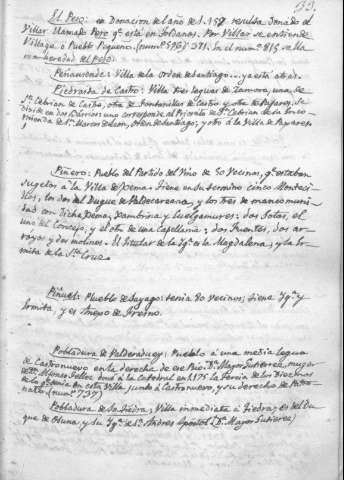 El Pero = en Donacion del año de 1.158 resulta Donado el
Villar llamado Pero q.e está en Soldanos. Por Villar se entiende
Village ó Pueblo Pequeño. (num.o 596) 371. En el num.o 815 se lla
ma heredad del Pelo.
Peñausende: Villa de la orden de Santiago. ya está atrás.
Piedraita de Castro: Villa tres leguas de Zamora, una de
S.n Cebrian de Castro, otra de Fontanillas de Castro y otra de Pajares, se
divide en dos Barrios uno corresponde al Priorato de S.n Cebrian de la Enco-
mienda de S.n Marcos de Leon, orden de Santiago; y otro à la Villa de Pajares
Piñero: Pueblo del Partido del Vino de 50 vecinos, q.e estaban
sugetos à la Villa de Xema. tiene en su termino cinco Monteci-
llos, los dos del Duque de Valdecarzana, y los tres de mancomuni-
dad con dicha Xema, Xambrina y Fuelgamures: dos Sotos, el
uno del Concejo, y el otro de una Capellania; dos Fuentes, dos ar-
royos y dos molinos. El titular de la Ig.a es la Magdalena; y la Er-
mita de la S.ta Cruz.
Piñuel: Pueblo de Sayago: tenia 80 vecinos, tiene Ig.a y
ermita, y es Anejo de Fresno.
Pobladura de Valderaduey: Pueblo à una media legua
de Castronuevo en la derecha de ese Rio. D.a Mayor Gutierrez, muger
de D.n Alfonso Tellez donó à la Catedral en 1.175 la Tercia de los Diezmos
de la q.e tenia en esta Villa junto à Castronuevo, y su derecho de Patro-
nato. (num.o 737)
Pobladura de la Tiedra; Villa inmediata à Tiedra; es del Du-
que de Osuna, y su Ig.a de S.n Andres Apostol (D.a Mayor Gutierrez)